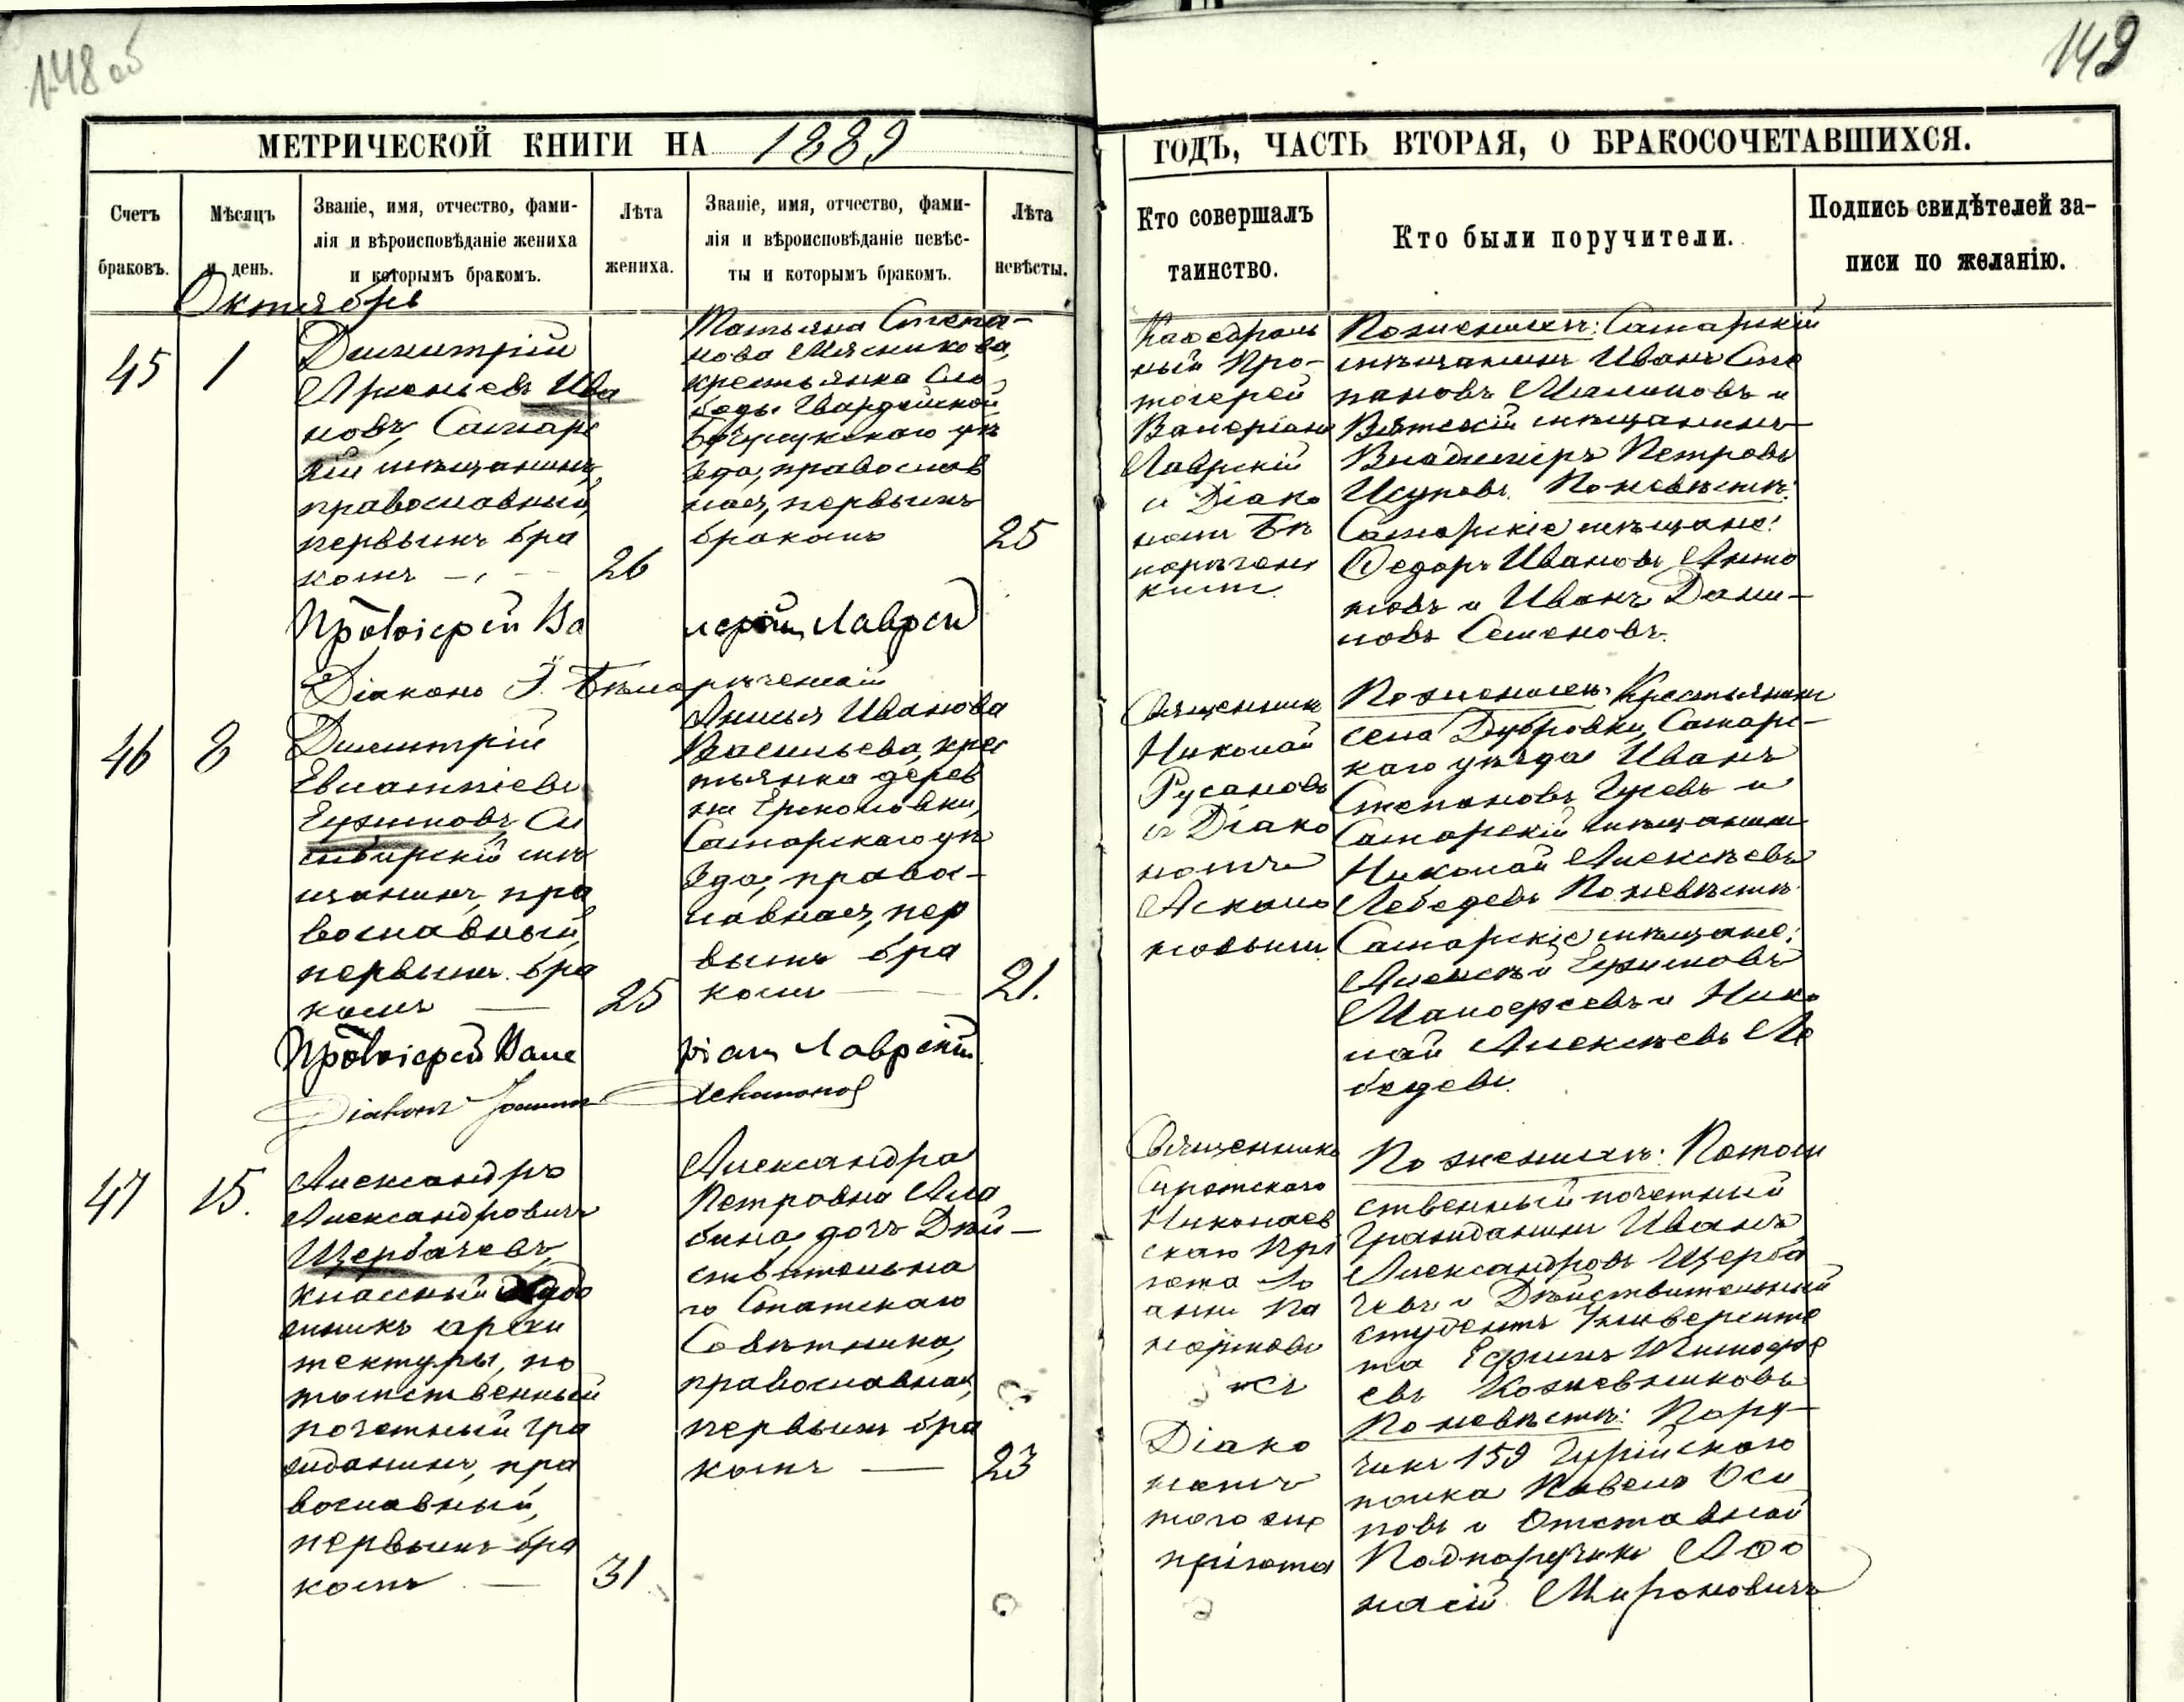 148 об
149
МЕТРИЧЕСКОЙ КНИГИ НА 1889
ГОДЪ, ЧАСТЬ ВТОРАЯ, О БРАКОСОЧЕТАВШИХСЯ.
Счетъ браковъ.
Мѣсяцъ и день.
Званіе, имя, отчество, фами-
лія и вѣроисповѣданіе жениха
и которымъ бракомъ.
Лѣта жениха.
Званіе, имя, отчество, фами-
лія и вѣроисповѣданіе невѣс-
ты и которымъ бракомъ.
Лѣта невѣсты.
Кто совершалъ
таинство.
Кто были поручители.
Подпись свидѣтелей за-
писи по желанію.
Октябрь
45
1
Димитрій
Арсеньевъ Ива
новъ, Самарс
кій мѣщанинъ,
православный,
первымъ бра
комъ
26
Татьяна Степа-
нова Мясникова,
крестьянка Сло
боды Гвардейской
Бузулукскаго уѣ
зда, православ
ная, первымъ
бракомъ
25
Каѳедраль
ный Про-
тоіерей
Валеріанъ
Лаврскій
и Діако
номъ Бѣ
лорѣченс
кимъ.
По женихѣ: Самарскій
мѣщанинъ Иванъ Сте
пановъ Малиновъ и
Вятскій мѣщанинъ
Владиміръ Петровъ
Исуповъ. По невѣстѣ:
Самарскіе мѣщане:
Ѳедоръ Ивановъ Анто
новъ и Иванъ Дани-
ловъ Семеновъ.
Протоіерей Ва
леріанъ Лаврскій
Діаконъ І. Бѣлорѣченскій
46
8
Димитрій
Евлампіевъ
Ефимовъ, Си
мбирскій мѣ
щанинъ, пра
вославный,
первымъ бра
комъ
25
Анисья Иванова
Васильева, крес
тьянка дерев
ни
Самарскаго уѣ
зда, правос-
лавная, пер
вымъ бра
комъ
21.
Священникъ
Николай
Русановъ
и Діако
номъ
По женихѣ: Крестьянинъ
села Дубровки, Самарс-
каго уѣзда Иванъ
Степановъ Гусевъ и
Самарскій мѣщанинъ
Николай Алексѣевъ
Лебедевъ По невѣстѣ:
Самарскіе мѣщане:
Алексѣй Ефимовъ
и Нико
лай Алексѣевъ Ле
бедевъ.
Протоіерей Вале
ріанъ Лаврскій
Діаконъ Іоаннъ
47
15.
Александръ
Александровичъ
Щербачевъ,
классный Худо
жникъ архи
тектуры, по
томственный
почетный гра
жданинъ, пра
вославный,
первымъ бра
комъ
31
Александра
Петровна Ала
бина, дочь Дѣй-
ствительна
го Статскаго
Совѣтника,
православная,
первымъ бра
комъ
23
Священникъ
Сиротскаго
Николаев
скаго Прі
юта Іо
аннъ
съ
Діако
номъ
того же
пріюта
По женихѣ: Потом
ственный почетный
Гражданинъ Иванъ
Александровъ Щерба
чевъ и Дѣйствительный
студентъ Университе
та Ефимъ Тимоѳе
евъ Кожевниковъ
По невѣстѣ: Пору-
чикъ 159 Гурійскаго
полка Павелъ Оси
повъ и Отставной
Подпоручикъ Аѳа
насій Мироновичъ